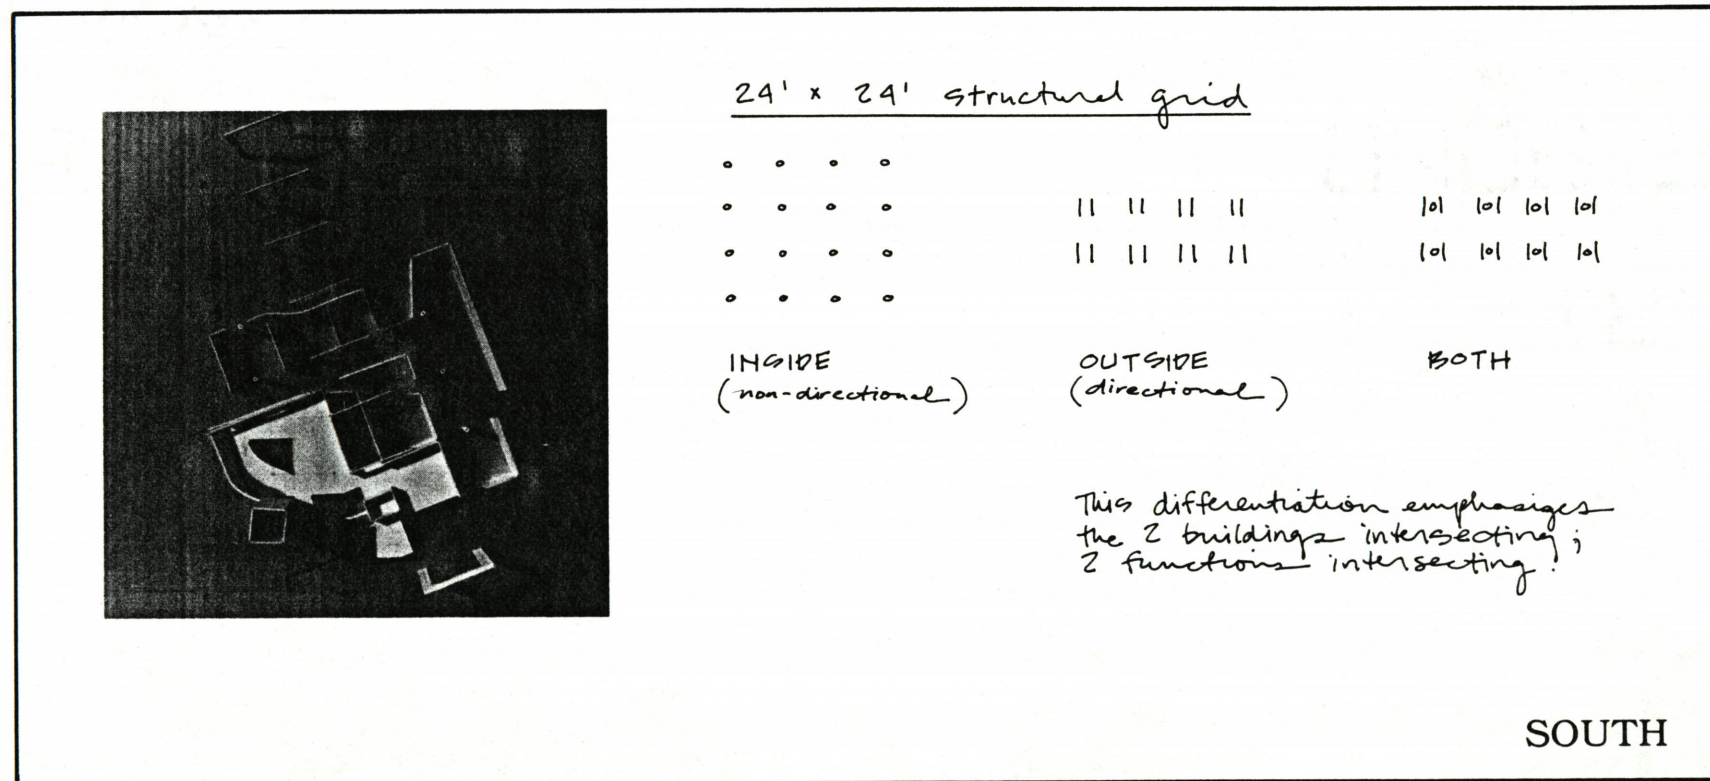 24' x 24' structural grid
INSIDE
(non-directional)
OUTSIDE
(directional)
BOTH
This differentiation emphasizes
the 2 buildings intersecting;
2 functions intersecting.
SOUTH